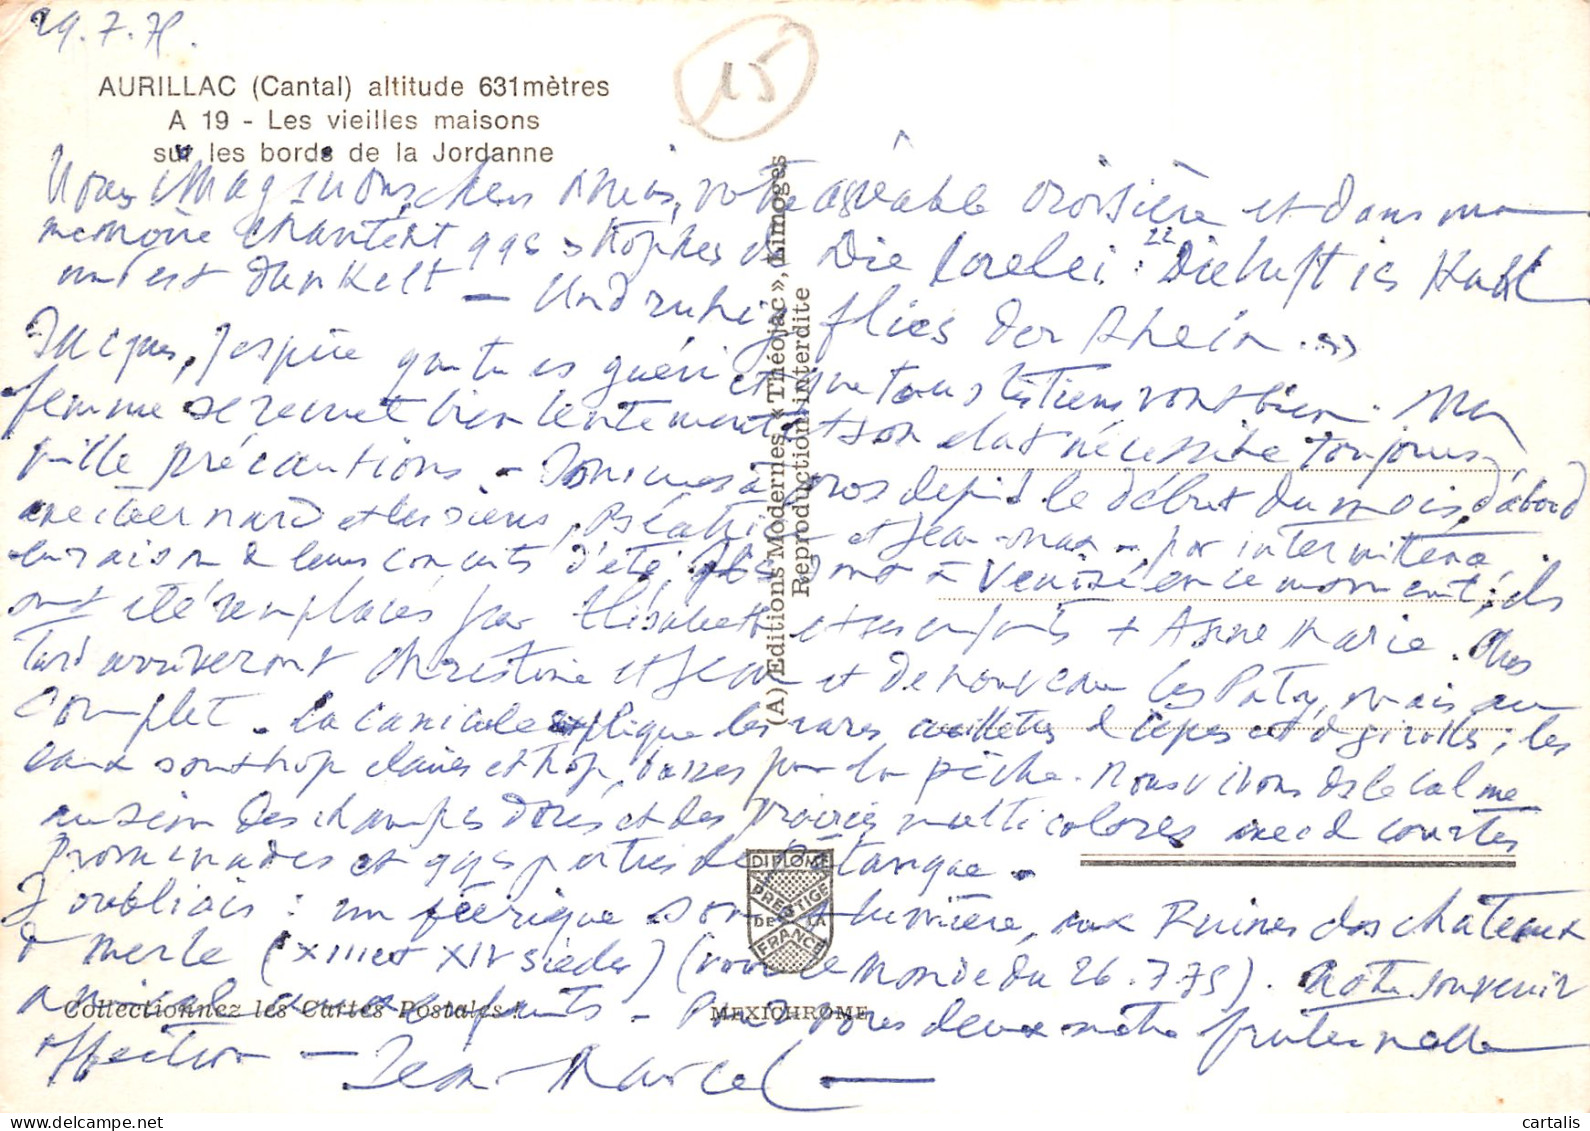 29.7.75.
15
AURILLAC (Cantal) altitude 631mètres
A 19 - Les vieilles maisons
sur les bords de la Jordanne
Nous imaginons, chers amis, votre agréable croisière et dans ma
mémoire chantent qqs strophes de Die Lorelei : "Die luft ist Kühl
und est dunkelt — Und ruhig flies der Rhein..."
Jacques, j'espère que tu es guéri et que tous les tiens vont bien. Ma
femme se remet bien lentement et son état nécessite toujours
mille précautions. - Sommes à depuis le début du mois, d'abord
avec Bernard et les siens, Béatrice et Jean-Max - par intermittence,
en raison de leurs circuits d'été, qui sont à Venise en ce moment ; ils
ont été remplacés par Elisabeth et ses enfants + Anne Marie. Plus
tard arriveront Christine et Jean et de nouveau les Paty, mais au
complet. La canicule explique les rares cueillettes de cèpes et de girolles ; les
eaux sont trop claires et trop basses pour la pêche. Nous vivons ds le calme
au sein des champs dorés et des prairies multicolores avec de courtes
promenades et qqes parties de Pétanque.
J'oubliais : un féérique son et lumière, aux Ruines des châteaux
de Merle (XIII et XIV siècles) (voir le Monde du 26.7.75). Notre souvenir
amical aux enfants - Pour vous deux notre fraternelle
affection — Jean-Marcel —
(A) Editions Modernes « Théojac », Limoges
Reproduction interdite
DIPLOME
PRESTIGE
DE LA
FRANCE
Collectionnez les Cartes Postales !
MEXICHROME
cartalis